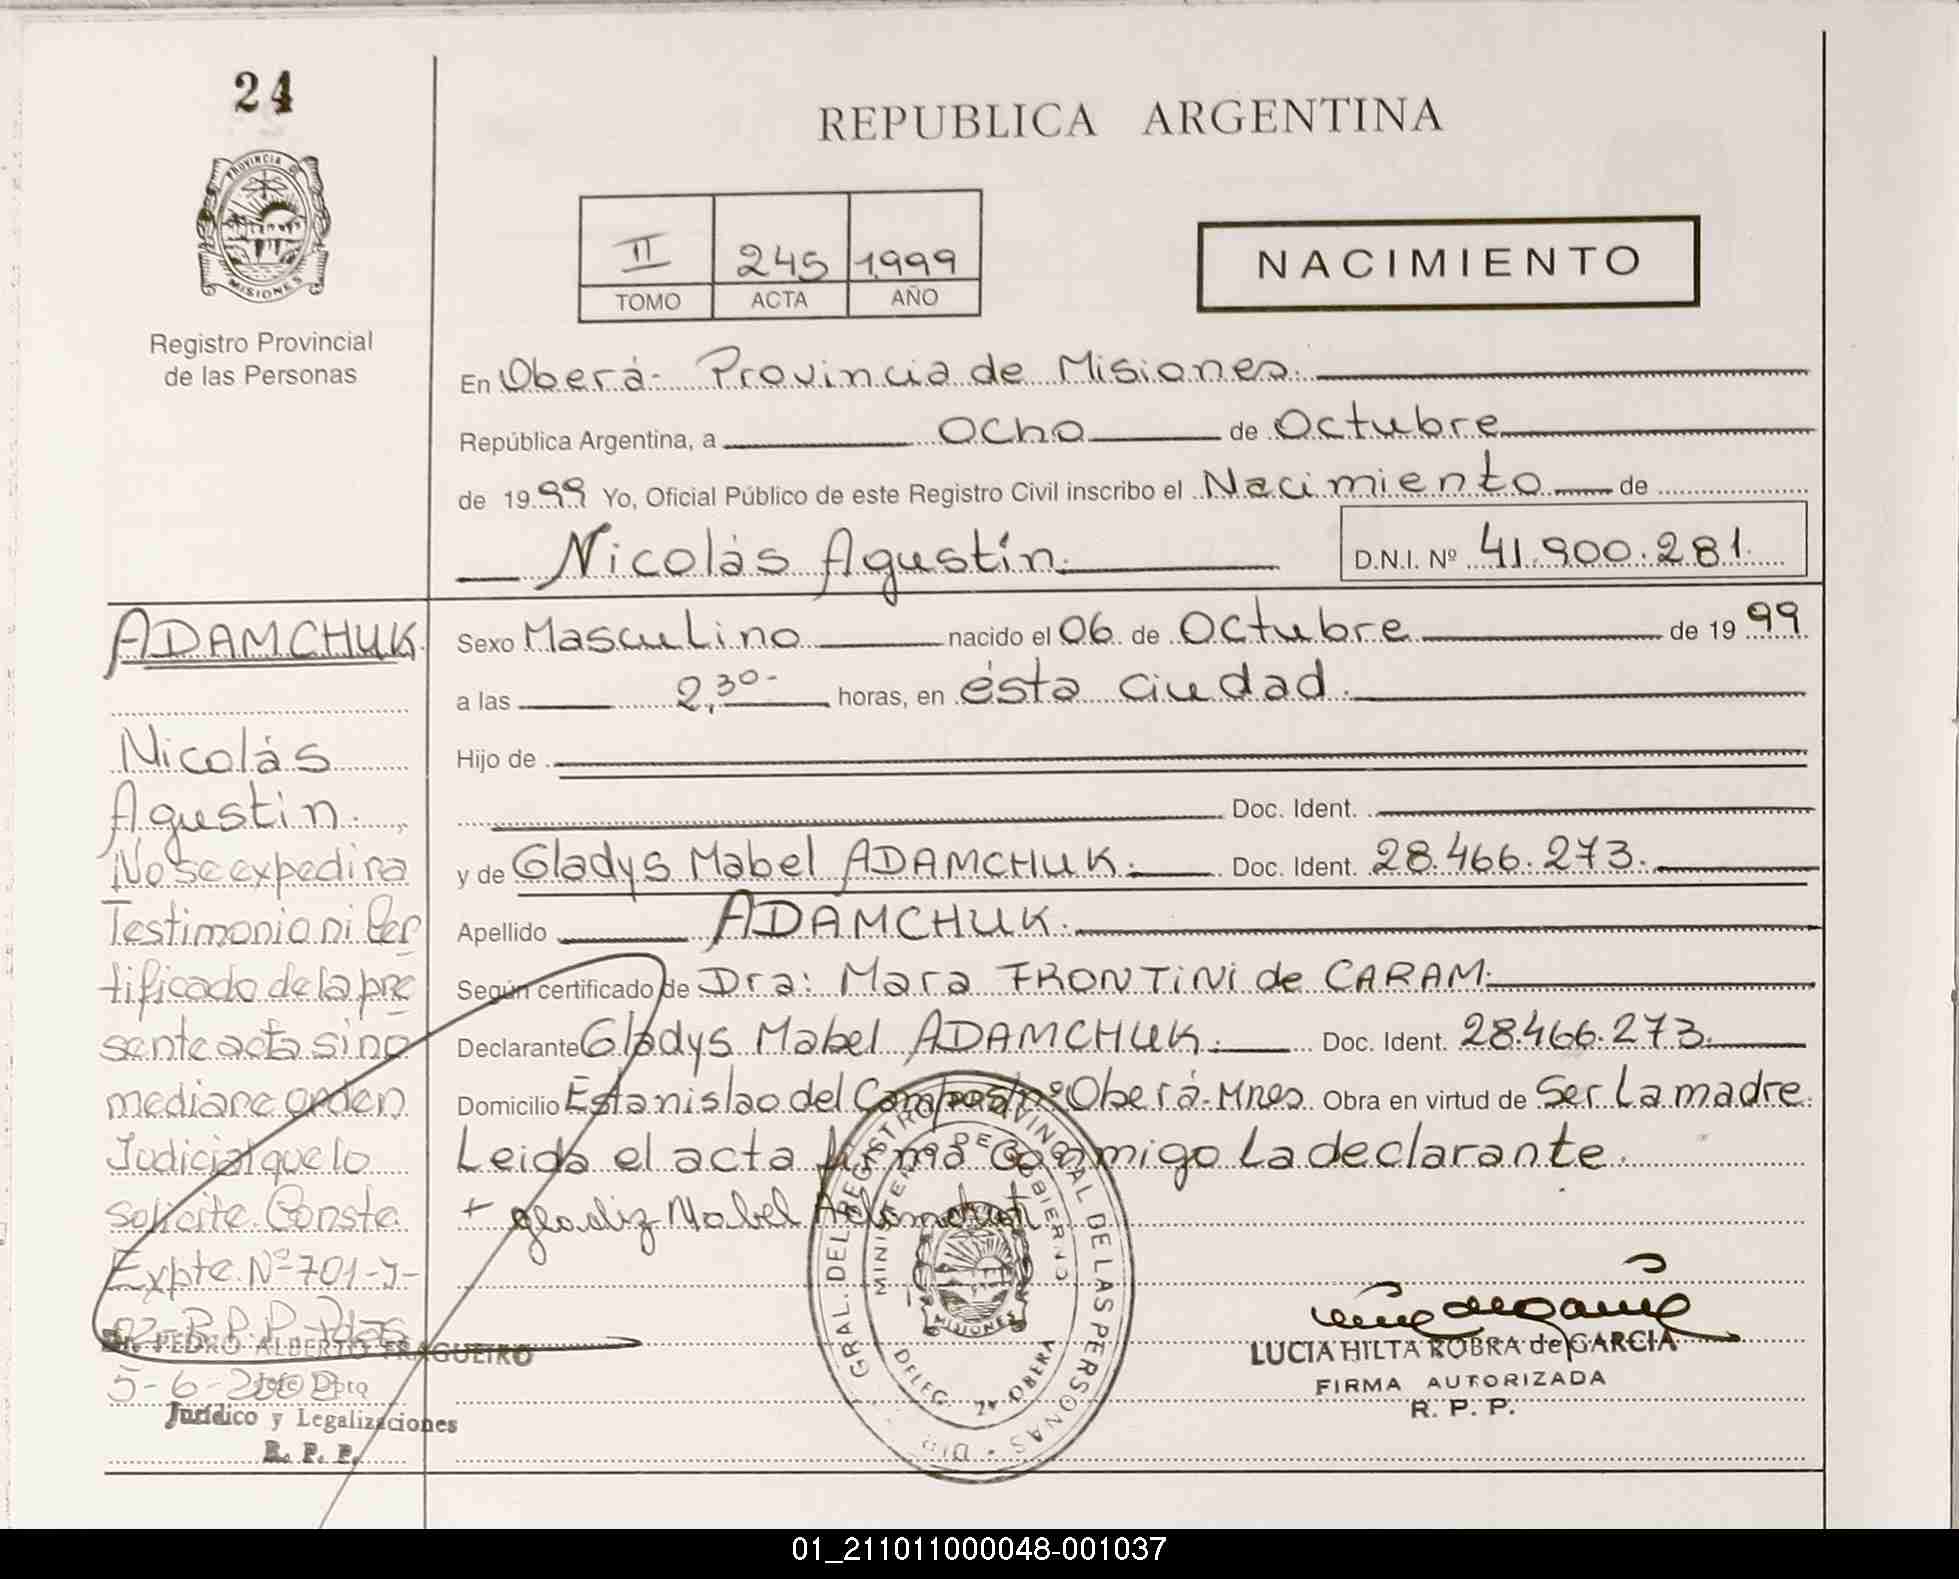 24
PROVINCIA
MISIONES
Registro Provincial
de las Personas
REPUBLICA ARGENTINA
II 245 1999
TOMO ACTA AÑO
NACIMIENTO
En Oberá- Provincia de Misiones.
República Argentina, a Ocho de Octubre
de 1999 Yo, Oficial Público de este Registro Civil inscribo el Nacimiento de
Nicolás Agustín.
D.N.I. Nº 41.900.281.
ADAMCHUK.
Nicolás
Agustin.
No se expedira
Testimonio ni Cer
tificado de la pre
sente acta sino
mediane orden
Judicial que lo
solicite. Conste.
Expte. Nº 701-J-
02-R.P.P.
PEDRO ALBERTO FRAGUEIRO
5-6-2002
Dpto
Jurídico y Legalizaciones
R. P. P.
Sexo Masculino nacido el 06 de Octubre de 1999
a las 2,30- horas, en ésta ciudad.
Hijo de
Doc. Ident.
y de Gladys Mabel ADAMCHUK. Doc. Ident. 28.466.273.
Apellido ADAMCHUK.
Según certificado de Dra: Mara FRONTINI de CARAM.
Declarante Gladys Mabel ADAMCHUK. Doc. Ident. 28.466.273.
Domicilio Estanislao del Campo s/nº Oberá-Mnes Obra en virtud de Ser La madre.
Leida el acta firma Conmigo La declarante.
+ gladiz Mabel Adamchuk
DIR. GRAL. DEL REGISTRO PROVINCIAL DE LAS PERSONAS
MINISTERIO DE GOBIERNO
MISIONES
DELEG. 2ª OBERA
LUCIA HILTA ROBRA de GARCIA
FIRMA AUTORIZADA
R. P. P.
01_211011000048-001037